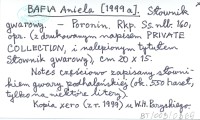 BAFIA Aniela [1999a]. Słownik
gwarowy. - Poronin. Rkp. Ss. nlb. 160,
opr. (z drukowanym napisem PRIVATE
COLLECTION, i nalepionym tytułem
Słownik gwarowy), cm 20 x 15.
Notes częściowo zapisany słowni-
kiem gwary podhalańskiej (ok. 550 haseł,
tylko na niektóre litery).
Kopia xero (z r. 1999) u Wit. Brzyskiego.